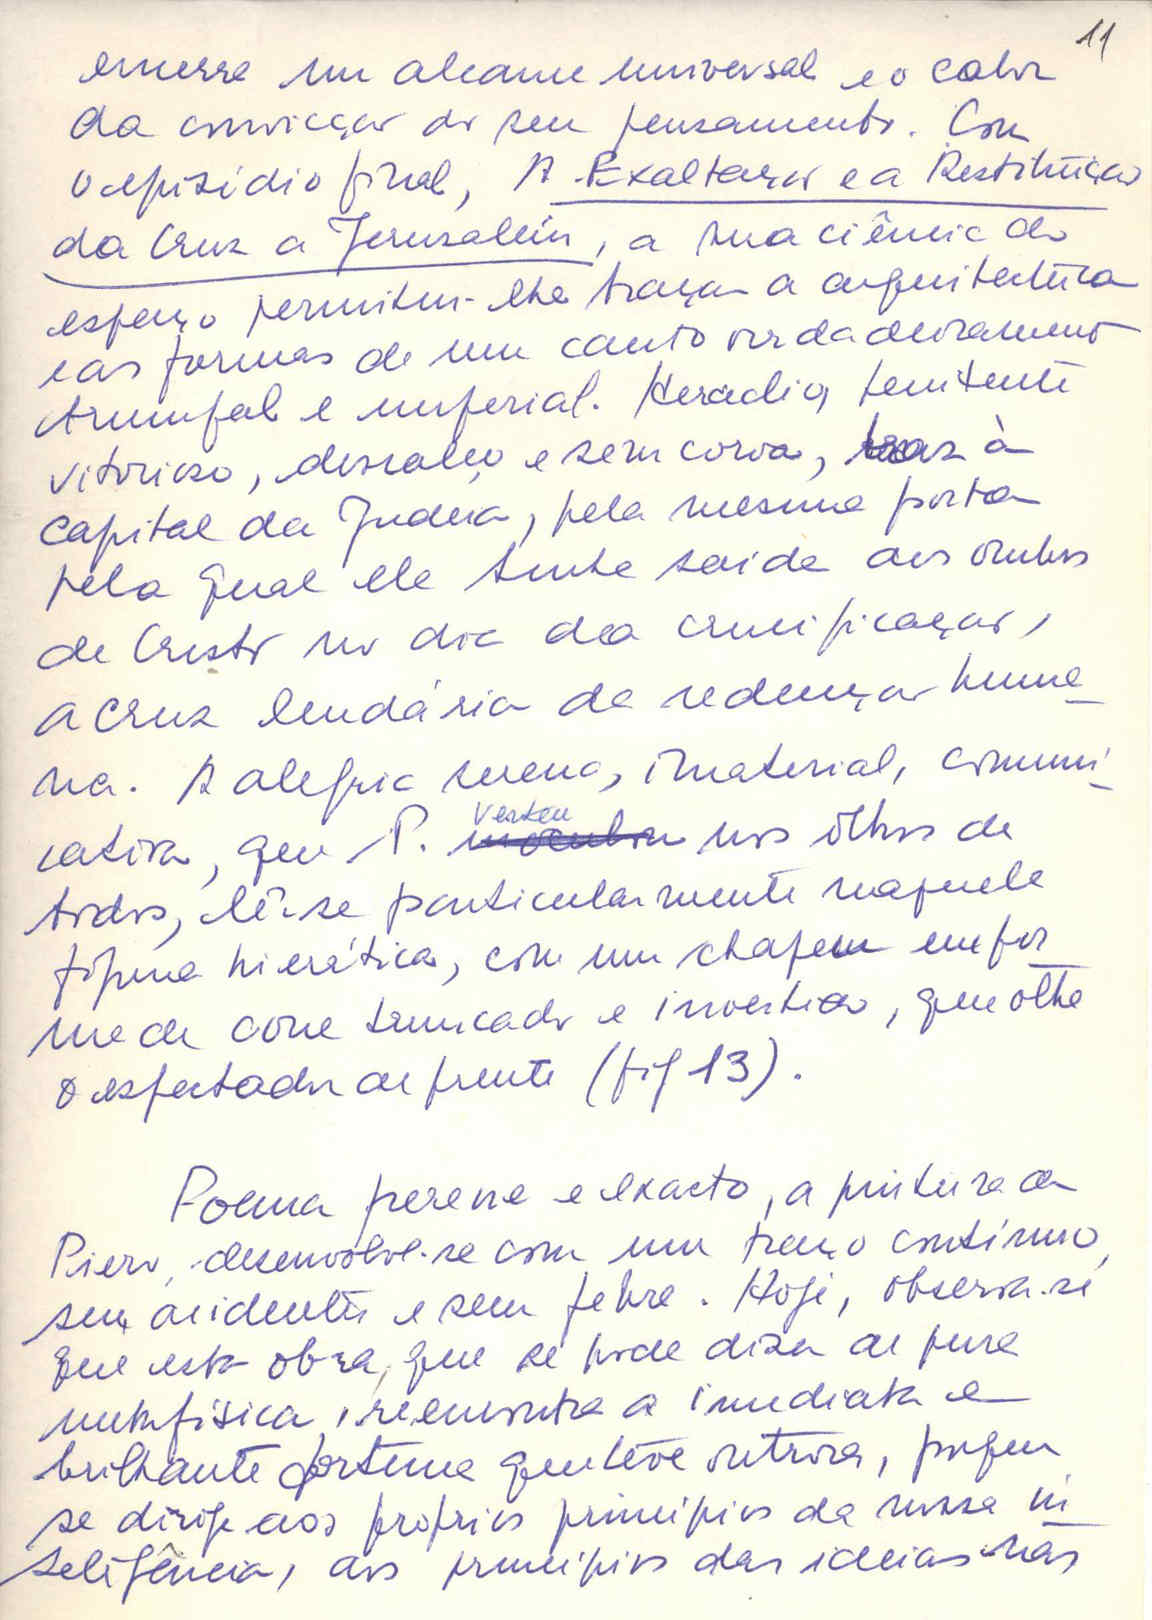 11
um alcance universal e o calor
da convicção do seu pensamento. Com
o episódio final, A Exaltação e a Restituição
da Cruz a Jerusalém, a sua ciência do
espaço permitiu-lhe traçar a arquitectura
e as formas de um canto verdadeiramente
triunfal e imperial. Heraclio, penitente
vitorioso, descalço e sem coroa, traz à
capital da Judeia, pela mesma porta
pela qual ela tinha saído aos ombros
de Cristo no dia da crucificação,
a cruz lendária da redenção huma_
na. A alegria serena, imaterial, comuni_
cativa, que P. verteu nos olhos de
todos, lê-se particularmente naquela
figura hierática, com um chapeu em for_
ma de cone truncado e invertido, que olha
o espectador de frente (fig 13).
Poema perene e exacto, a pintura de
Piero, desenvolve-se com um traço contínuo,
sem acidentes e sem febre. Hoje, observa-se
que esta obra, que se pode dizer de pura
metafísica, reencontra a imediata e
brilhante fortuna que teve outrora, porque
se dirige aos proprios princípios da nossa in_
teligência, aos princípios das ideias mas